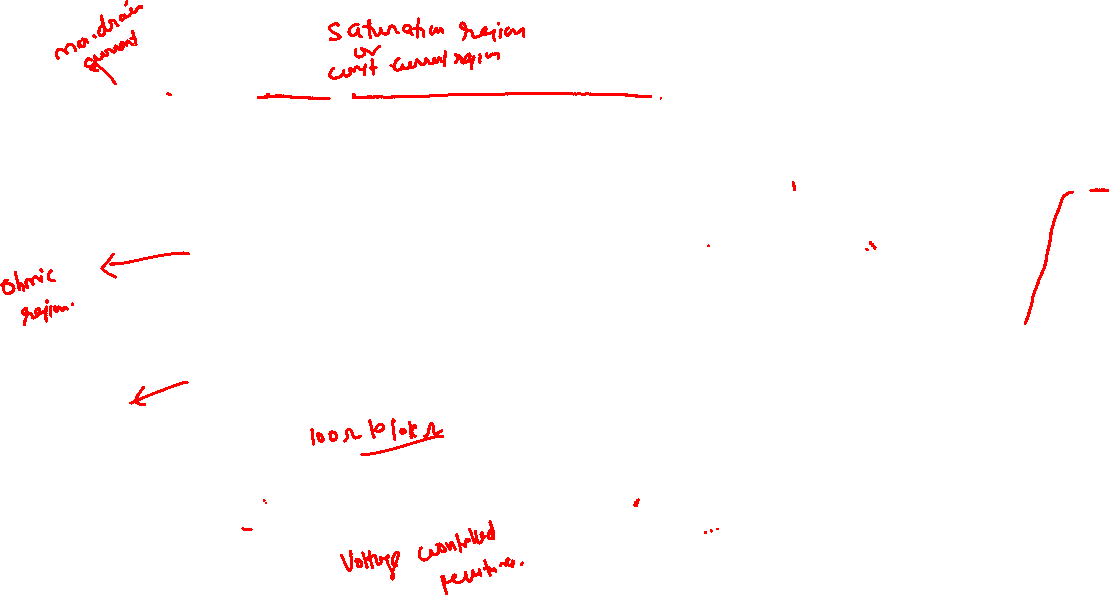 max.drain
current
saturation region
or
const current region
Ohmic
region.
100Ω to 10kΩ
Voltage controlled
resistance.